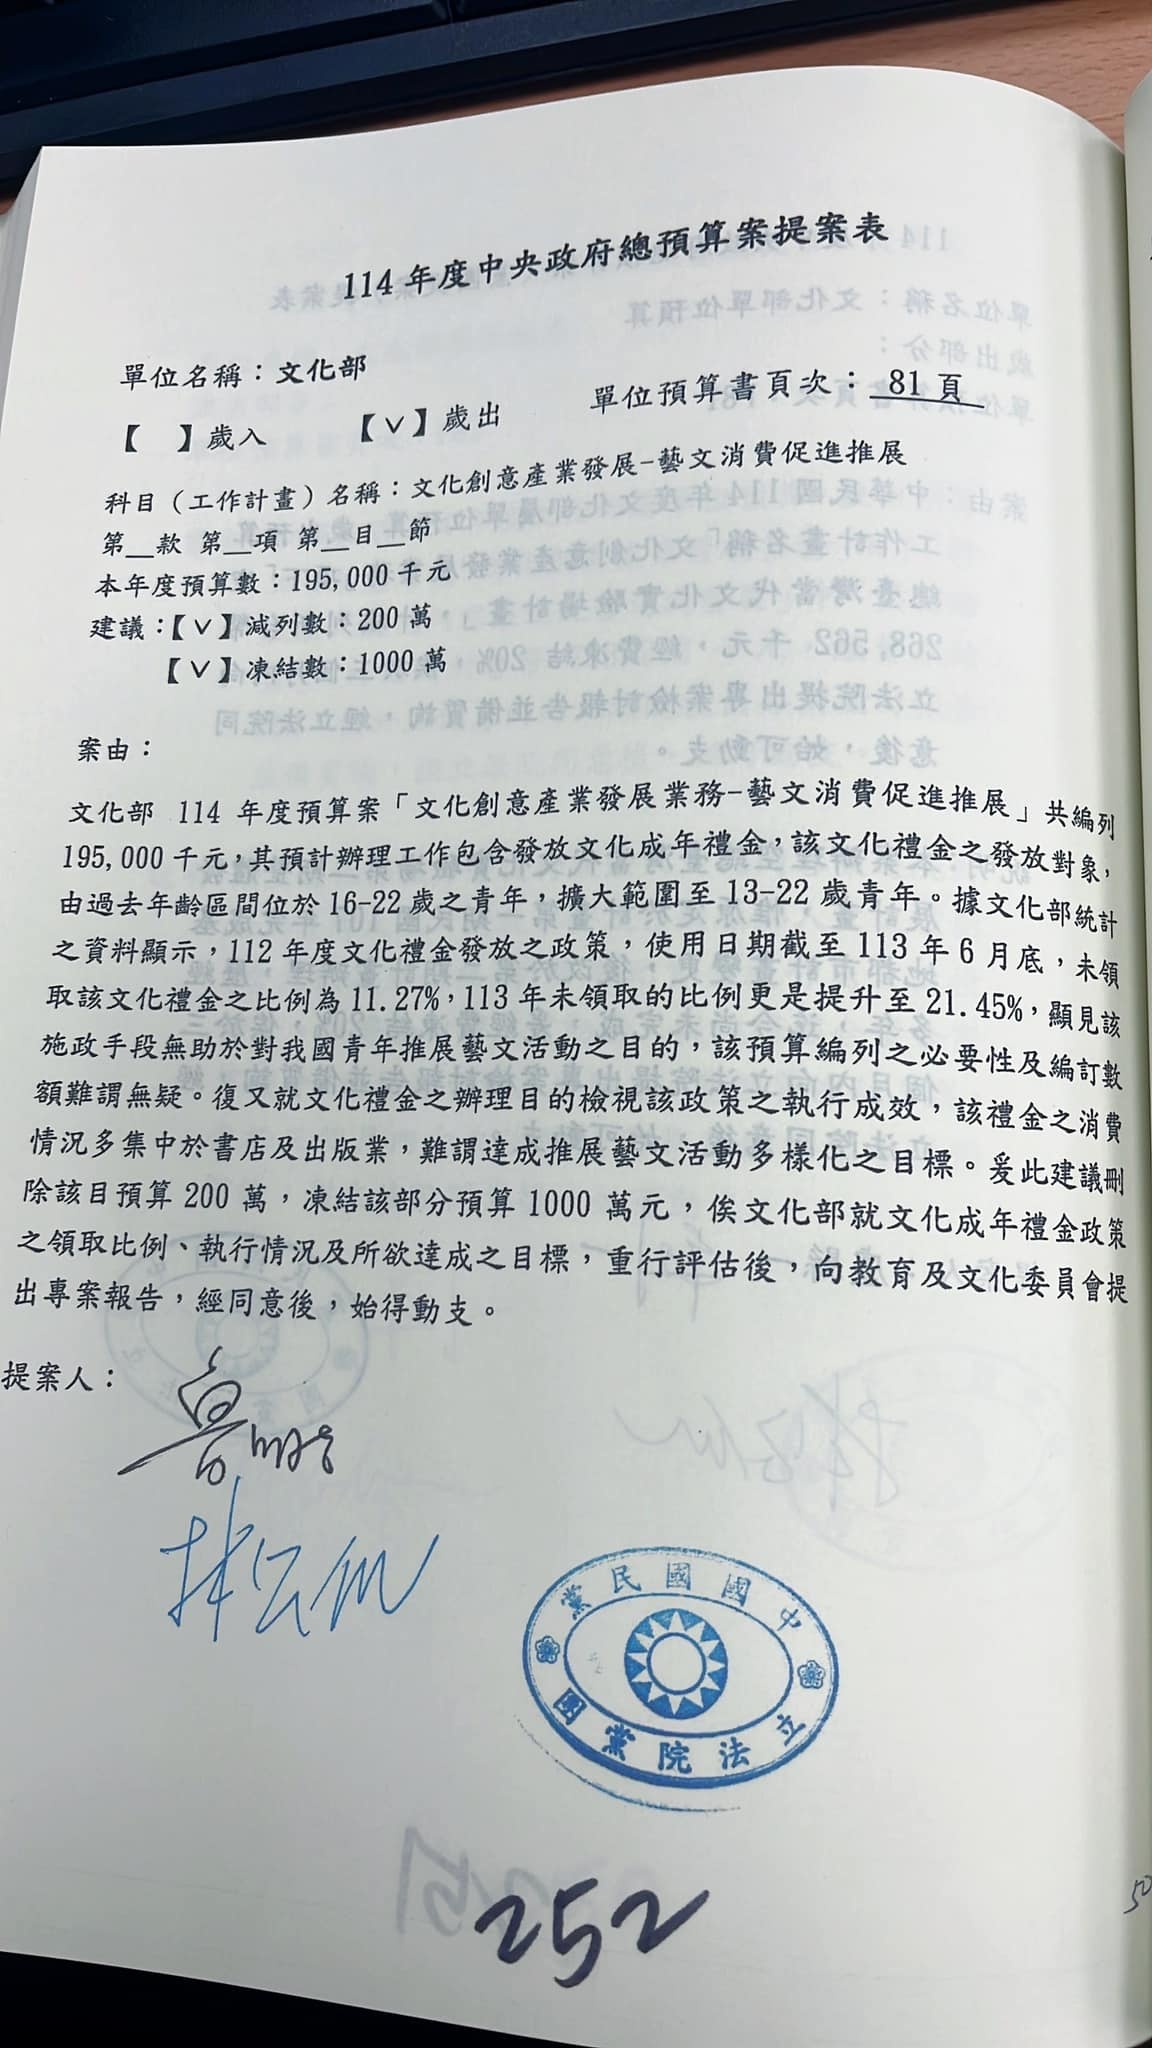 114年度中央政府總預算案提案表
單位名稱：文化部
【　】歲入　【∨】歲出　單位預算書頁次：81頁
科目（工作計畫）名稱：文化創意產業發展-藝文消費促進推展
第__款 第__項 第__目__節
本年度預算數：195,000千元
建議：【∨】減列數：200萬
【∨】凍結數：1000萬
案由：
文化部 114 年度預算案「文化創意產業發展業務-藝文消費促進推展」共編列
195,000千元，其預計辦理工作包含發放文化成年禮金，該文化禮金之發放對象，
由過去年齡區間位於16-22歲之青年，擴大範圍至13-22歲青年。據文化部統計
之資料顯示，112年度文化禮金發放之政策，使用日期截至113年6月底，未領
取該文化禮金之比例為11.27%，113年未領取的比例更是提升至21.45%，顯見該
施政手段無助於對我國青年推展藝文活動之目的，該預算編列之必要性及編訂數
額難謂無疑。復又就文化禮金之辦理目的檢視該政策之執行成效，該禮金之消費
情況多集中於書店及出版業，難謂達成推展藝文活動多樣化之目標。爰此建議刪
除該目預算200萬，凍結該部分預算1000萬元，俟文化部就文化成年禮金政策
之領取比例、執行情況及所欲達成之目標，重行評估後，向教育及文化委員會提
出專案報告，經同意後，始得動支。
提案人：
中國國民黨
立法院黨團
252
50